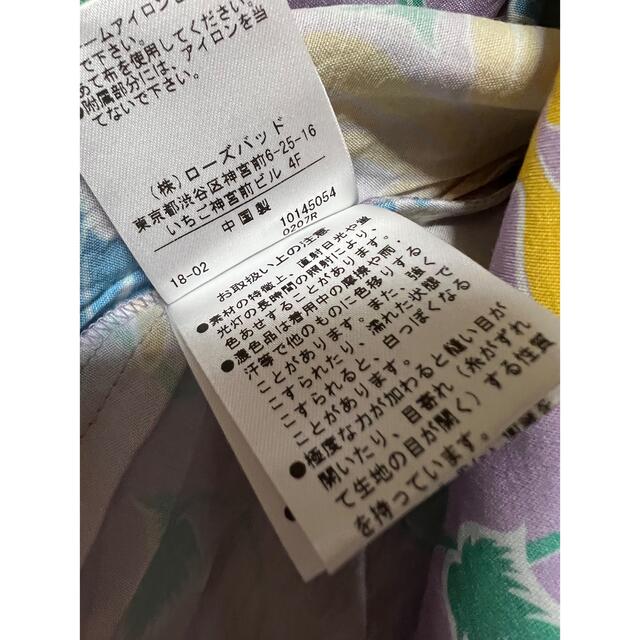 ームアイロン
で下さい。
あて布を使用してください。
●附属部分には、アイロンを当
てないで下さい。
(株)ローズバッド
東京都渋谷区神宮前6-25-16
いちご神宮前ビル 4F
中国製
10145054
0207R
18-02
お取扱い上の注意
●素材の特徴上、直射日光や蛍
光灯の長時間の照射により、
色あせすることがあります。
●濃色品は着用中の摩擦や雨・
汗等で他のものに色移りする
ことがあります。また、強く
こすられたり、濡れた状態で
こすられると、白っぽくなる
ことがあります。
●極度な力が加わると縫い目が
開いたり、目寄れ(糸がずれ
て生地の目が開く)する性質
を持っています。